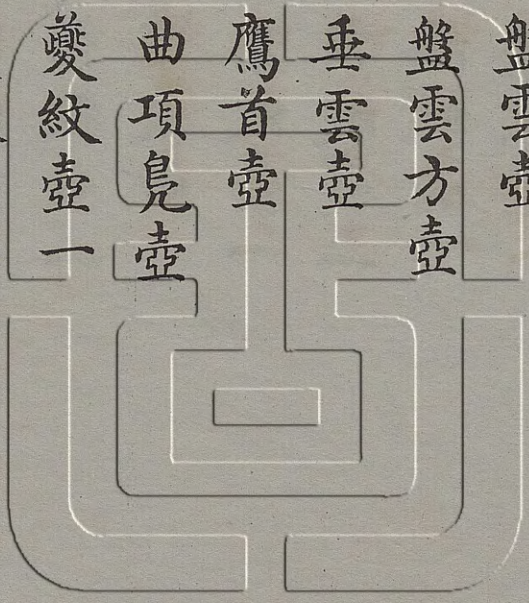 盤雲壺
盤雲方壺
垂雲壺
鷹首壺
曲項鳧壺
夔紋壺一